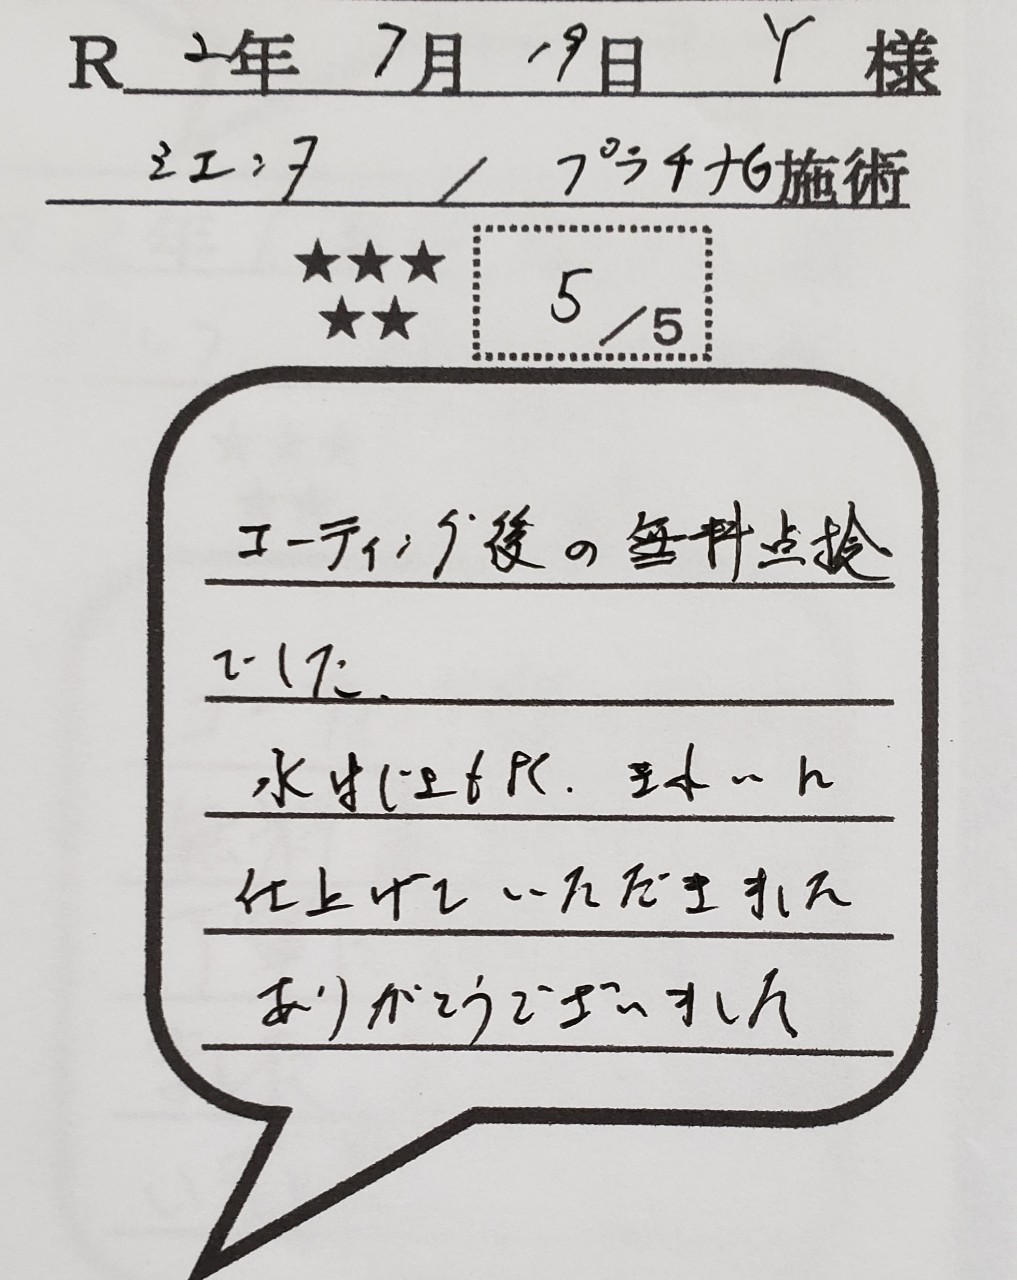 R 2年 7月 19日 Y 様
シエンタ / プラチナG施術
★★★
★★
5/5
コーティング後の無料点検
でした。
水はじきも良く、きれいに
仕上げていただきました
ありがとうございました